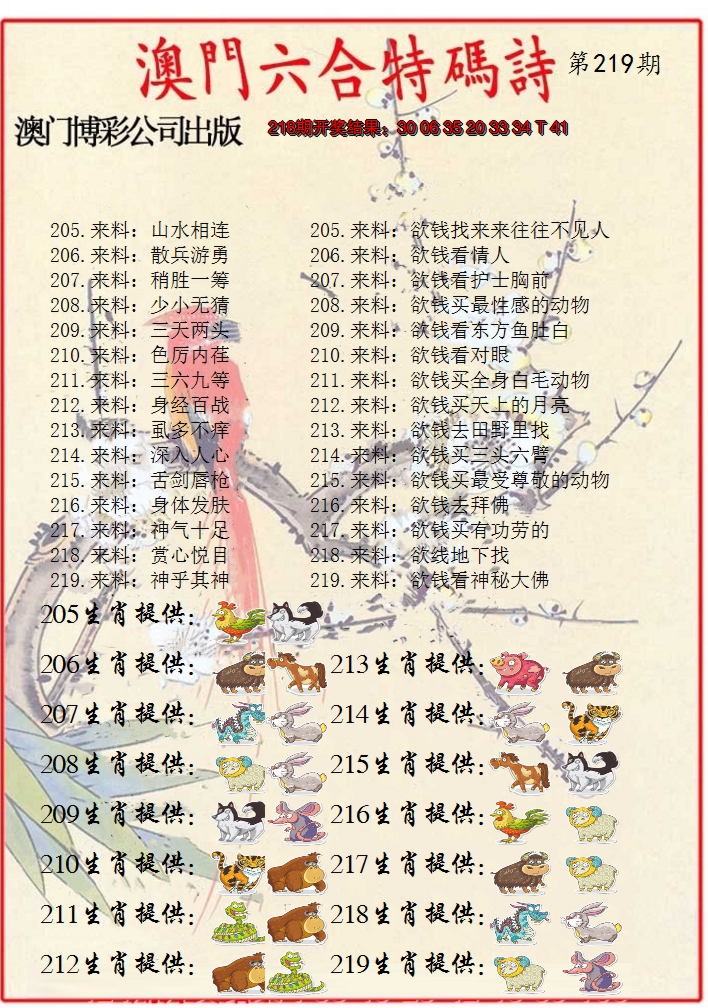 澳門六合特碼詩 第219期
澳门博彩公司出版 218期开奖结果：30 06 35 20 33 34 T 41
205.来料：山水相连 205.来料：欲钱找来来往往不见人
206.来料：散兵游勇 206.来料：欲钱看情人
207.来料：稍胜一筹 207.来料：欲钱看护士胸前
208.来料：少小无猜 208.来料：欲钱买最性感的动物
209.来料：三天两头 209.来料：欲钱看东方鱼肚白
210.来料：色厉内荏 210.来料：欲钱看对眼
211.来料：三六九等 211.来料：欲钱买全身白毛动物
212.来料：身经百战 212.来料：欲钱买天上的月亮
213.来料：虱多不痒 213.来料：欲钱去田野里找
214.来料：深入人心 214.来料：欲钱买三头六臂
215.来料：舌剑唇枪 215.来料：欲钱买最受尊敬的动物
216.来料：身体发肤 216.来料：欲钱去拜佛
217.来料：神气十足 217.来料：欲钱买有功劳的
218.来料：赏心悦目 218.来料：欲线地下找
219.来料：神乎其神 219.来料：欲钱看神秘大佛
205生肖提供：
206生肖提供： 213生肖提供：
207生肖提供： 214生肖提供：
208生肖提供： 215生肖提供：
209生肖提供： 216生肖提供：
210生肖提供： 217生肖提供：
211生肖提供： 218生肖提供：
212生肖提供： 219生肖提供：